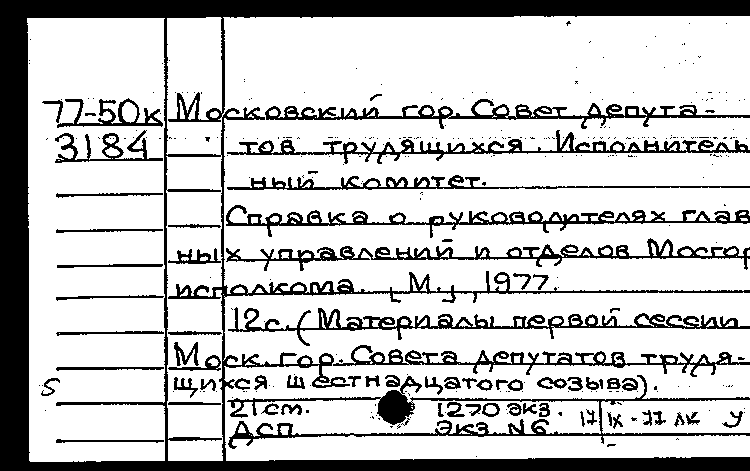 77-50к Московский гор. Совет депута-
3184 тов трудящихся. Исполнитель
ный комитет.
Справка о руководителях глав
ных управлений и отделов Мосгор
исполкома. [М.], 1977.
12с. (Материалы первой сессии
Моск. гор. Совета депутатов трудя-
щихся шестнадцатого созыва).
21см. 1270 экз.
ДСП экз. №6.